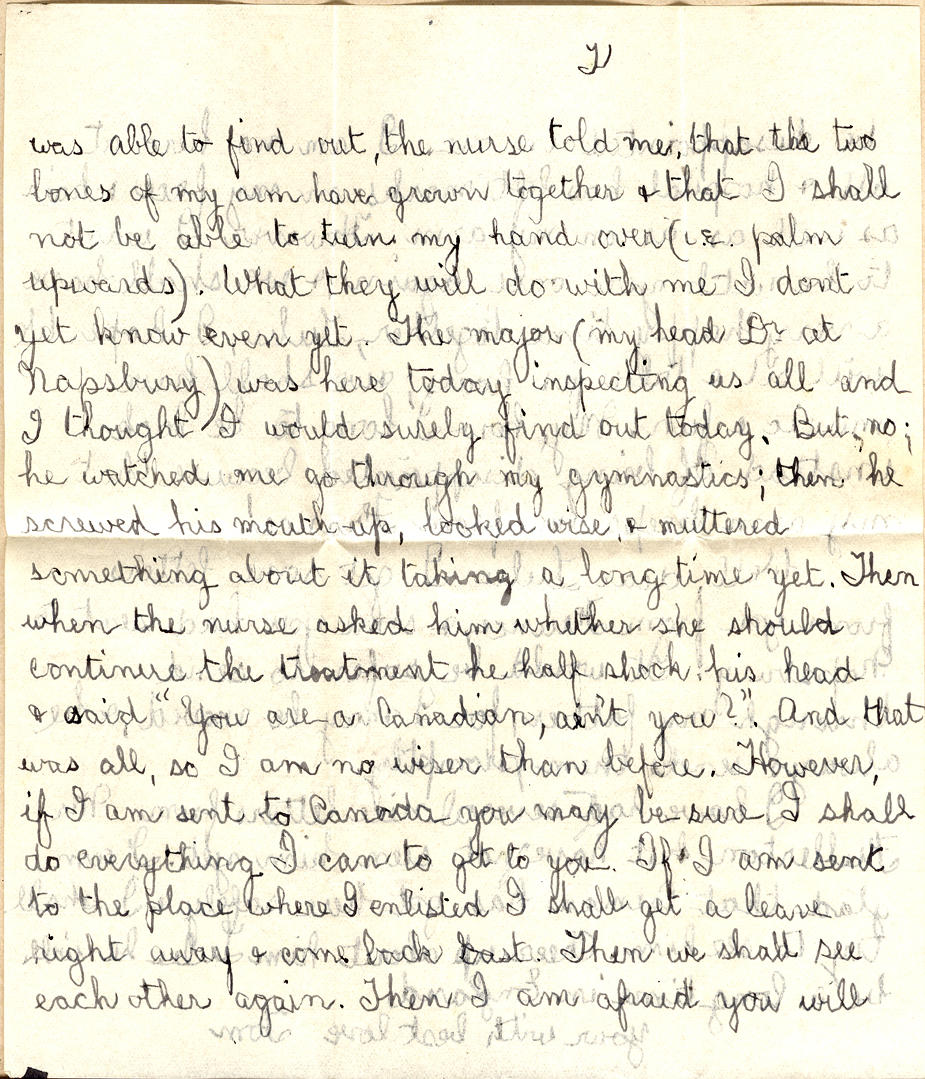 was able to find out, the nurse told me, that the two
bones of my arm have grown together & that I shall
not be able to turn my hand over (i.e. palm
upwards). What they will do with me I dont
yet know even yet. The major (my head Dr at
Napsbury) was here today inspecting us all and
I thought I would surely find out today. But, no;
he watched me go through my gymnastics; then he
screwed his mouth up, looked wise, & muttered
something about it taking a long time yet. Then
when the nurse asked him whether she should
continue the treatment he half shook his head
& said "You are a Canadian, ain't you?". And that
was all, so I am no wiser than before. However,
if I am sent to Canada you may be sure I shall
do everything I can to get to you. If I am sent
to the place where I enlisted I shall get a leave
right away & come back East. Then we shall see
each other again. Then I am afraid you will
your with best love